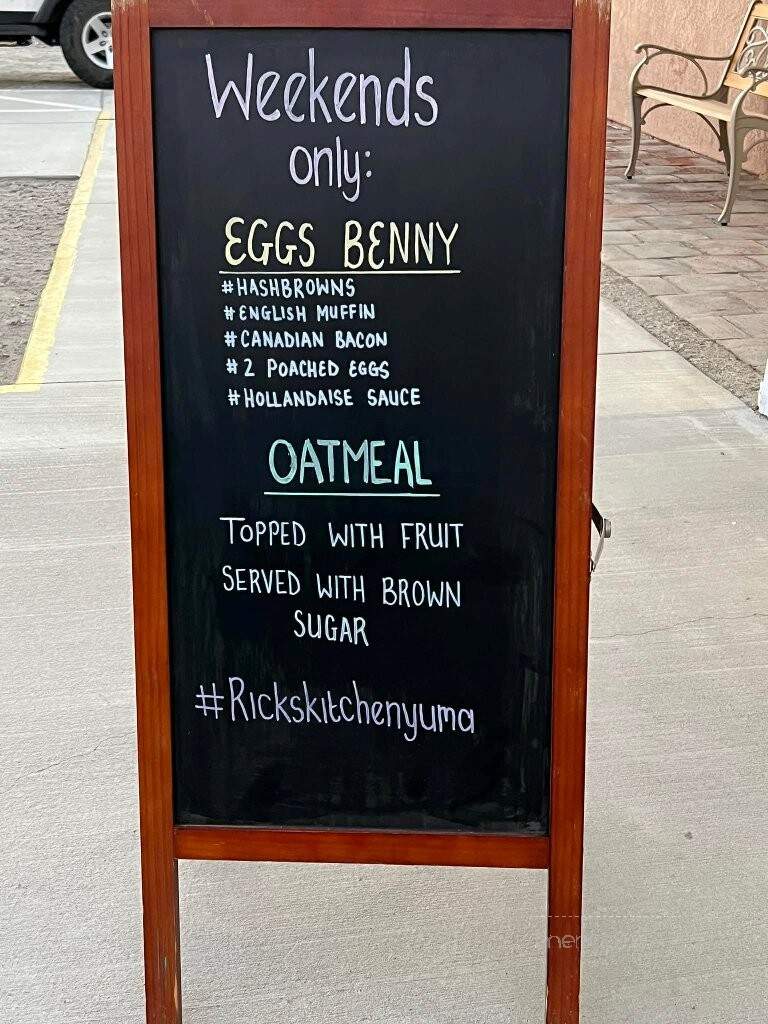 Weekends
only:
EGGS BENNY
#HASHBROWNS
#ENGLISH MUFFIN
#CANADIAN BACON
#2 POACHED EGGS
#HOLLANDAISE SAUCE
OATMEAL
TOPPED WITH FRUIT
SERVED WITH BROWN
SUGAR
#Rickskitchenyuma